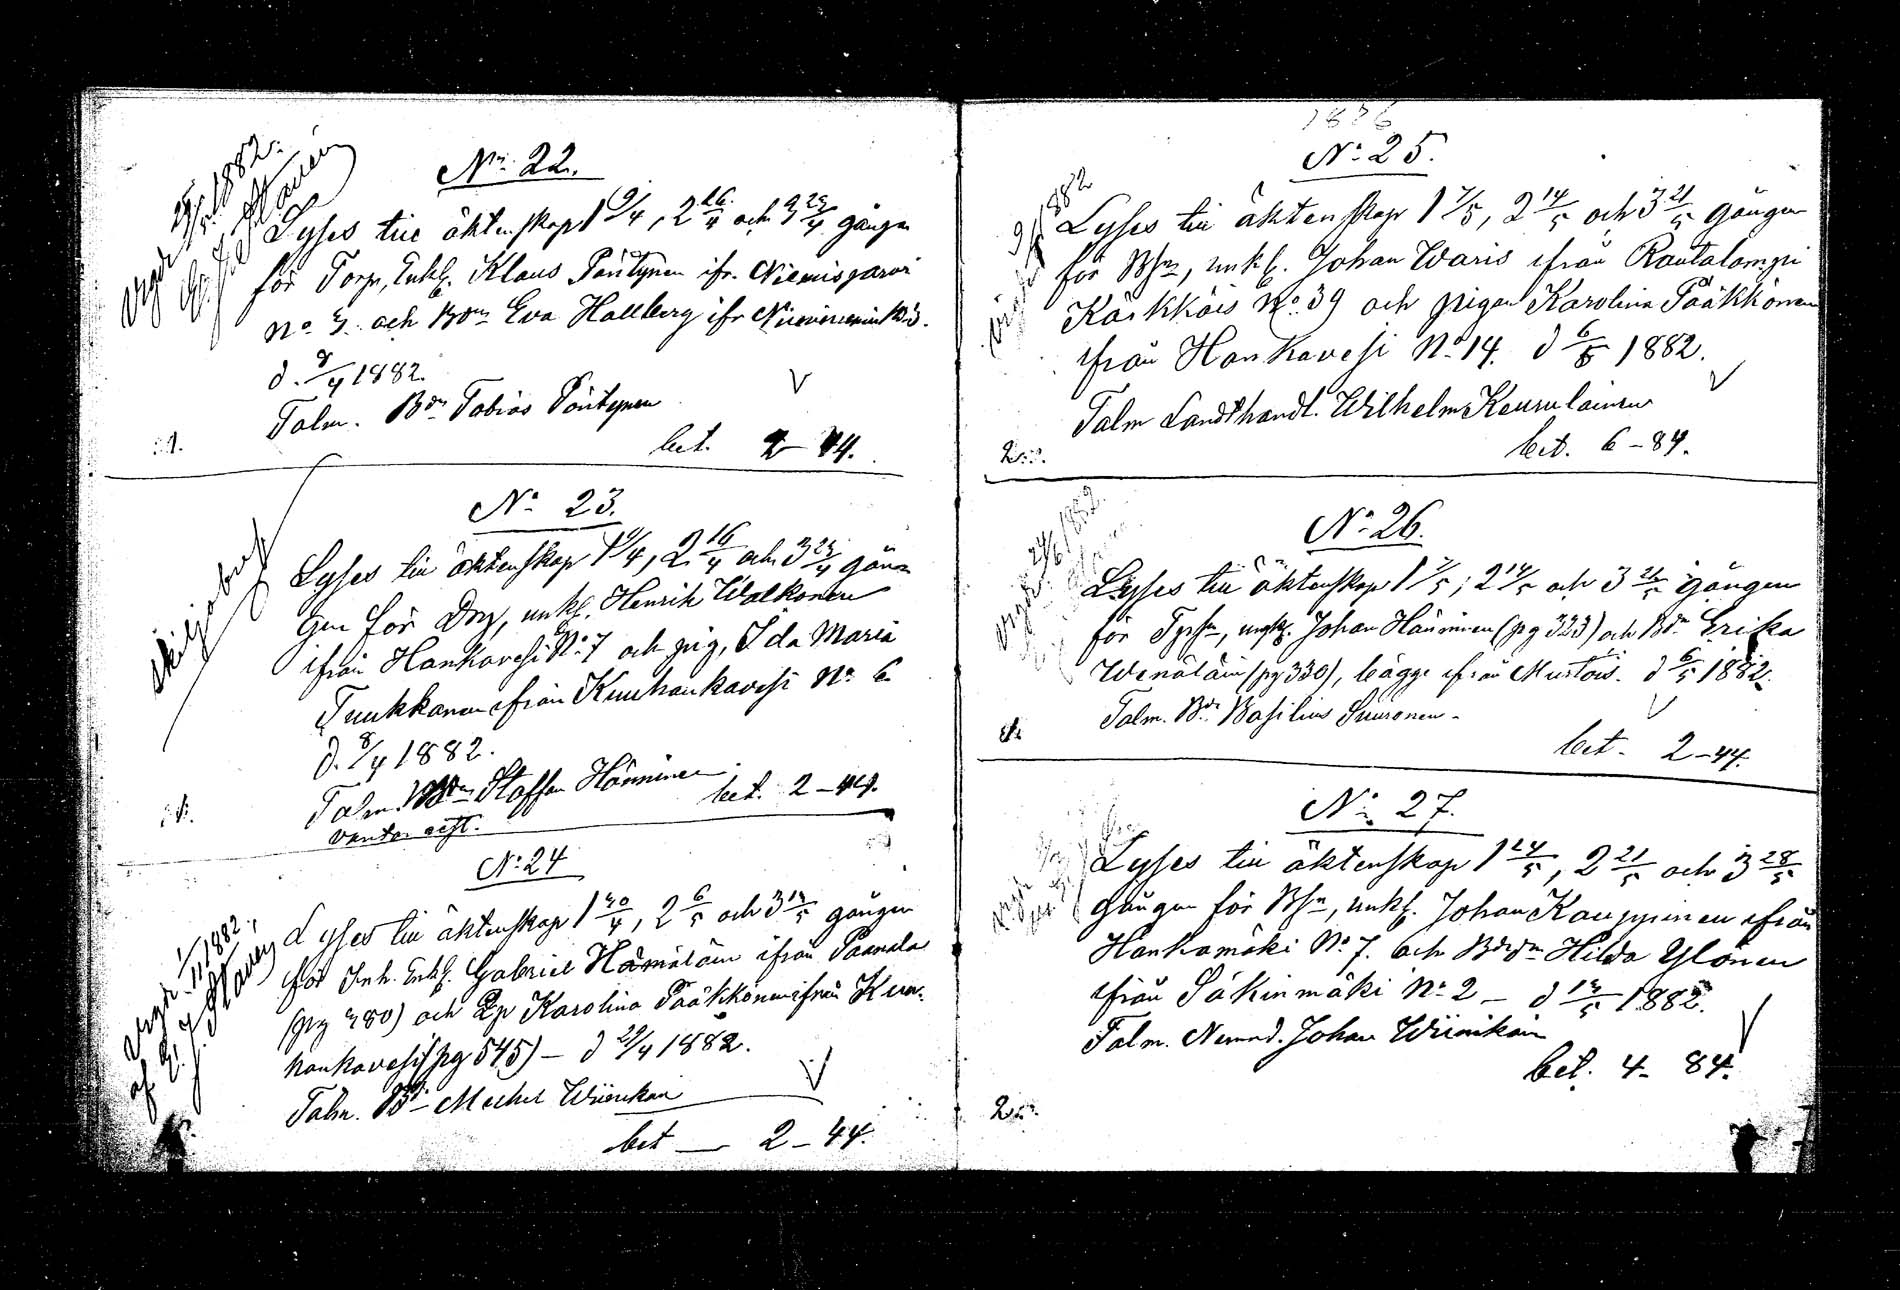 No 22.
Vigde 1882.
Lyses till äktenskap 1 9/4, 2 16/4 och 3 23/4 gången
för Torp, Enkl. Klaus Pöntynen ifr. Niemisjärvi
No 3. och Bdr Eva Hallberg ifr
d. 8/4 1882.
Talm. Bdn Tobias Pöntynen
bet. 2-44.
No 23.
skiljobref
Lyses till äktenskap 1 9/4, 2 16/4 och 3 23/4 gån-
gen för Drg, unkl. Henrik Walkonen
ifrån Hankavesi No 7 och pig, Ida Maria
Tuukkanen ifrån Kuuhankavesi No 6
d. 8/4 1882.
Talm. Staffan Hänninen
bet. 2-44.
No 24
vigde 1/11 1882,
af E. J.
Lyses till äktenskap 1 30/4, 2 6/5 och 3 13/5 gången
för Inh. Enkl. Gabriel Hämäläin ifrån Paanala
(pg 380) och Karolina Pääkkönen ifrån Kuu-
hankavesi (pg 545) - d 29/4 1882.
Talm. Michel Wiinikain
bet — 2-44.
1886
No 25.
Lyses till äktenskap 1 7/5, 2 14/5 och 3 21/5 gången
för Bsn, unkl. Johan Waris ifrån Rautalampi
Kärkkäis No 39 och pigan Karolina Pääkkönen
ifrån Hankavesi No 14. d 6/5 1882.
Talm Landthandl. Wilhelm Keurulainen
bet. 6-84.
No 26.
vigde 24/6 1882.
Lyses till äktenskap 1 7/5, 2 14/5 och 3 21/5 gången
för Tprsn, ungk. Johan Hänninen (pg 323) och Bdr Erika
Wenäläin (pg 330), bägge ifrån Mustois. d 6/5 1882.
Talm. Bdn Basilius Suuronen.
bet. 2-44.
No 27.
Lyses till äktenskap 1 14/5, 2 21/5 och 3 28/5
gången för Bsn, unkl. Johan Kauppinen ifrån
Hankamäki No 7. och Hilda Ylönen
ifrån Säkinmäki No 2 - d 13/5 1882.
Talm. Nemnd. Johan Wiinikain
bet. 4-84.